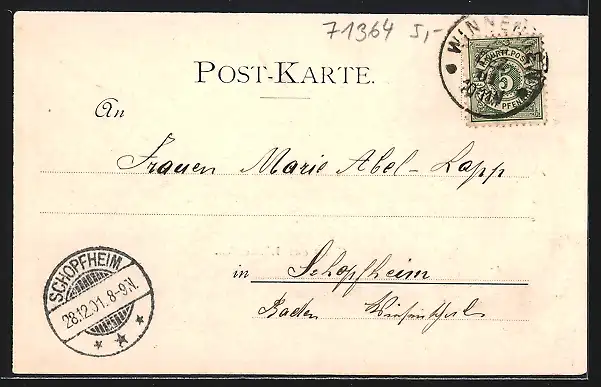 71364 5,-
WINNENDEN
K. WÜRTT. POST
5
FÜNF PFENNIG
POST-KARTE.
An
Frauen Marie Abel-Lapp
in Schopfheim
Baden Wiesenthal
SCHOPFHEIM
28.12.01. 8-9N.